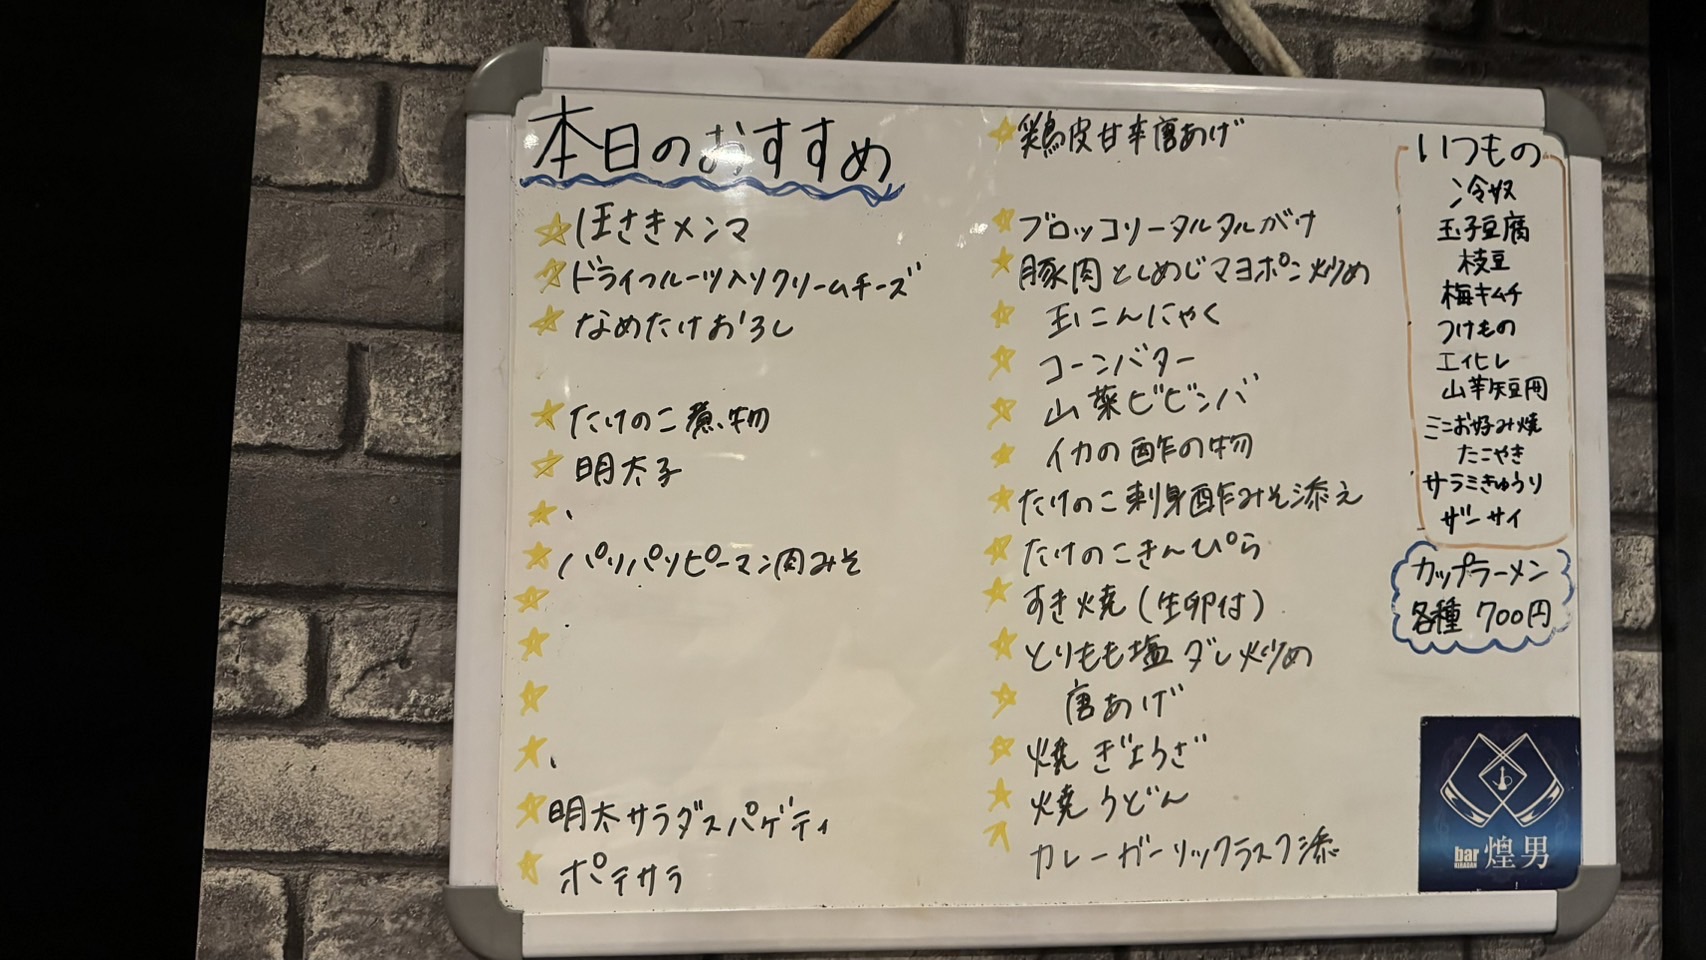 本日のおすすめ
ほさきメンマ
ドライフルーツ入りクリームチーズ
なめたけおろし
たけのこ煮物
明太子
パリパリピーマン肉みそ
明太サラダスパゲティ
ポテサラ
鶏皮甘辛唐あげ
ブロッコリータルタルがけ
豚肉としめじマヨポン炒め
玉こんにゃく
コーンバター
山菜ビビンバ
イカの酢の物
たけのこ刺身酢みそ添え
たけのこきんぴら
すき焼(生卵付)
とりもも塩ダレ炒め
唐あげ
焼ぎょうざ
焼うどん
カレーガーリックラスク添
いつもの
冷奴
玉子豆腐
枝豆
梅キムチ
つけもの
エイヒレ
山芋短冊
ミニお好み焼
たこやき
サラミきゅうり
ザーサイ
カップラーメン
各種 700円
bar 煌男